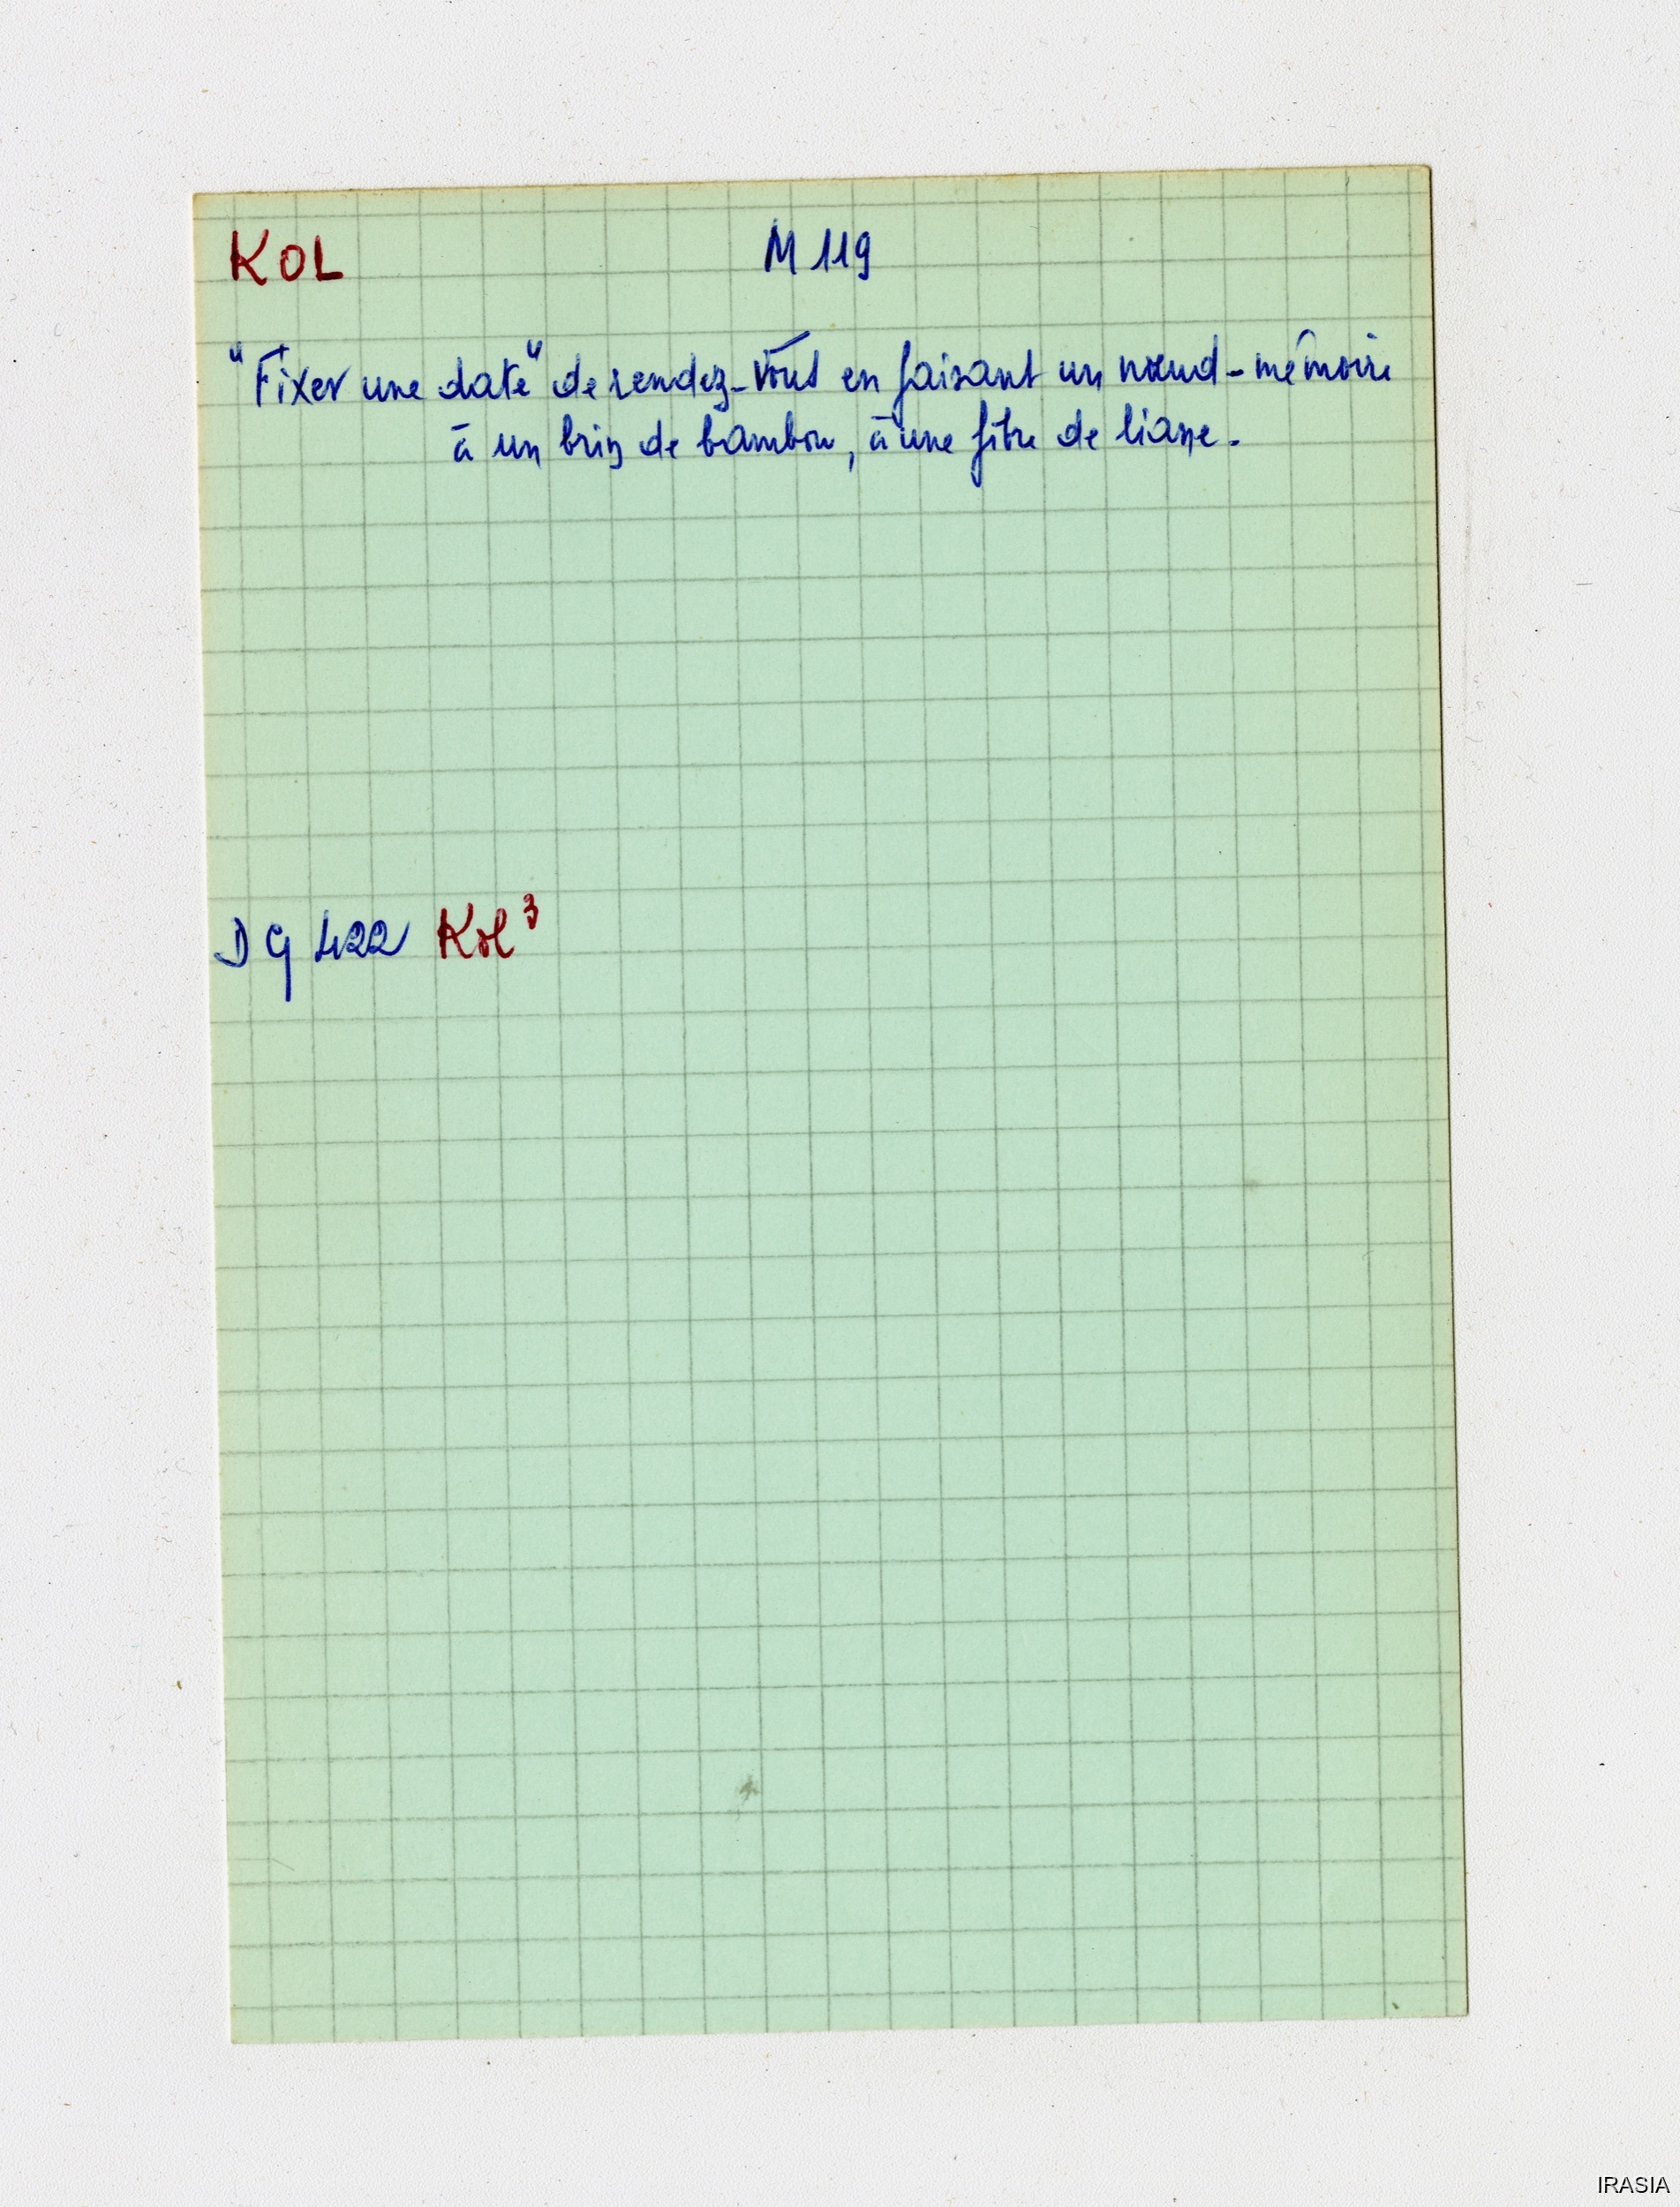 KOL M 119
"Fixer une date" de rendez-vous en faisant un nœud-mémoire
à un brin de bambou, à une fibre de liane.
DG 422 Kol³
IRASIA